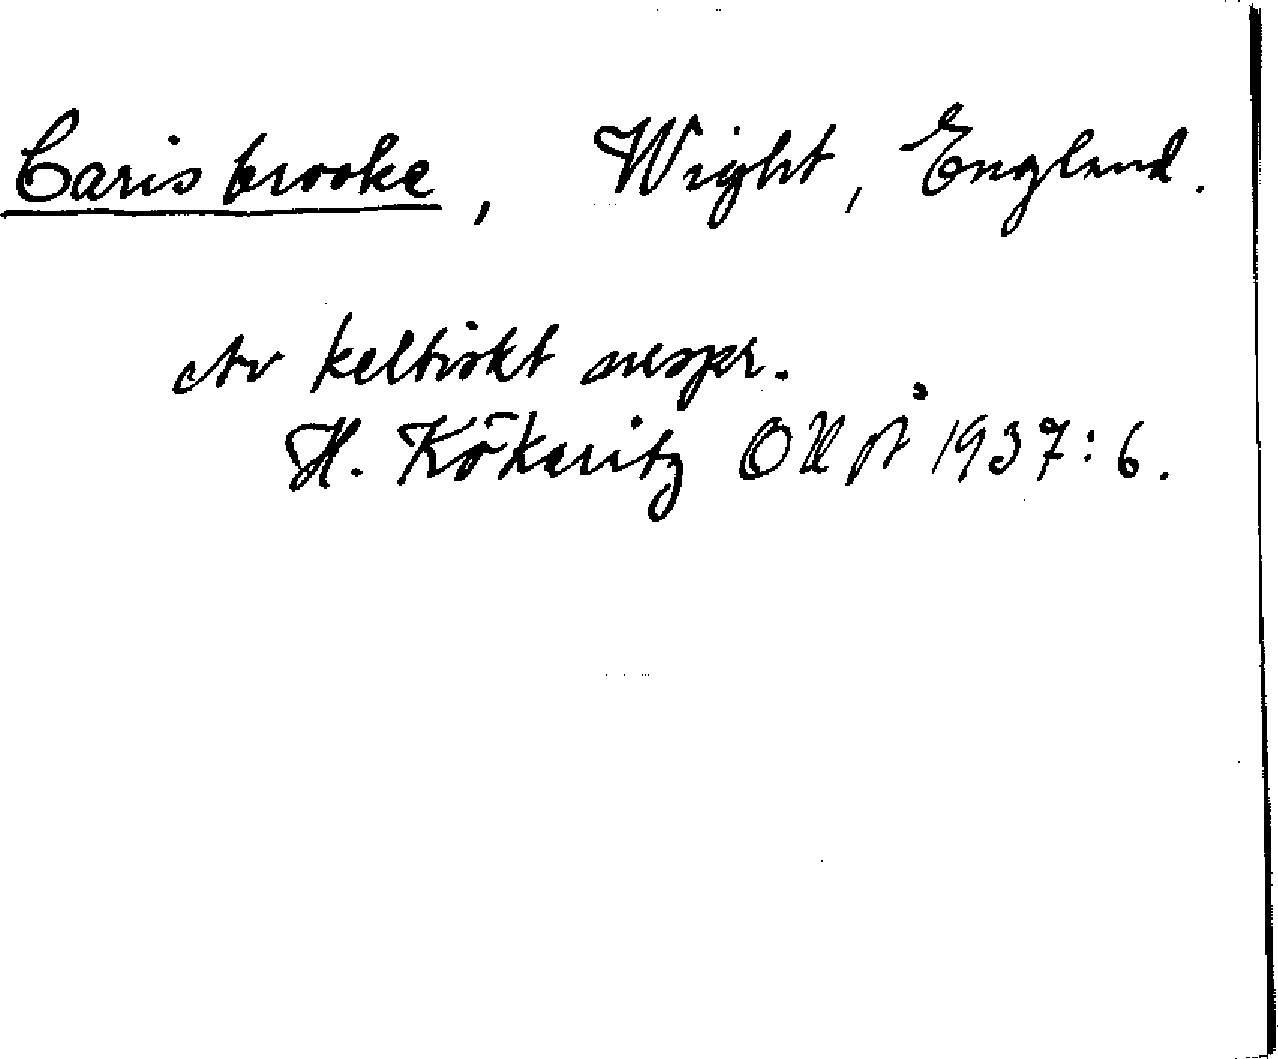 Carisbrooke, Wight, England.
Av keltiskt urspr.
H. Kökeritz OUÅ 1937:6.